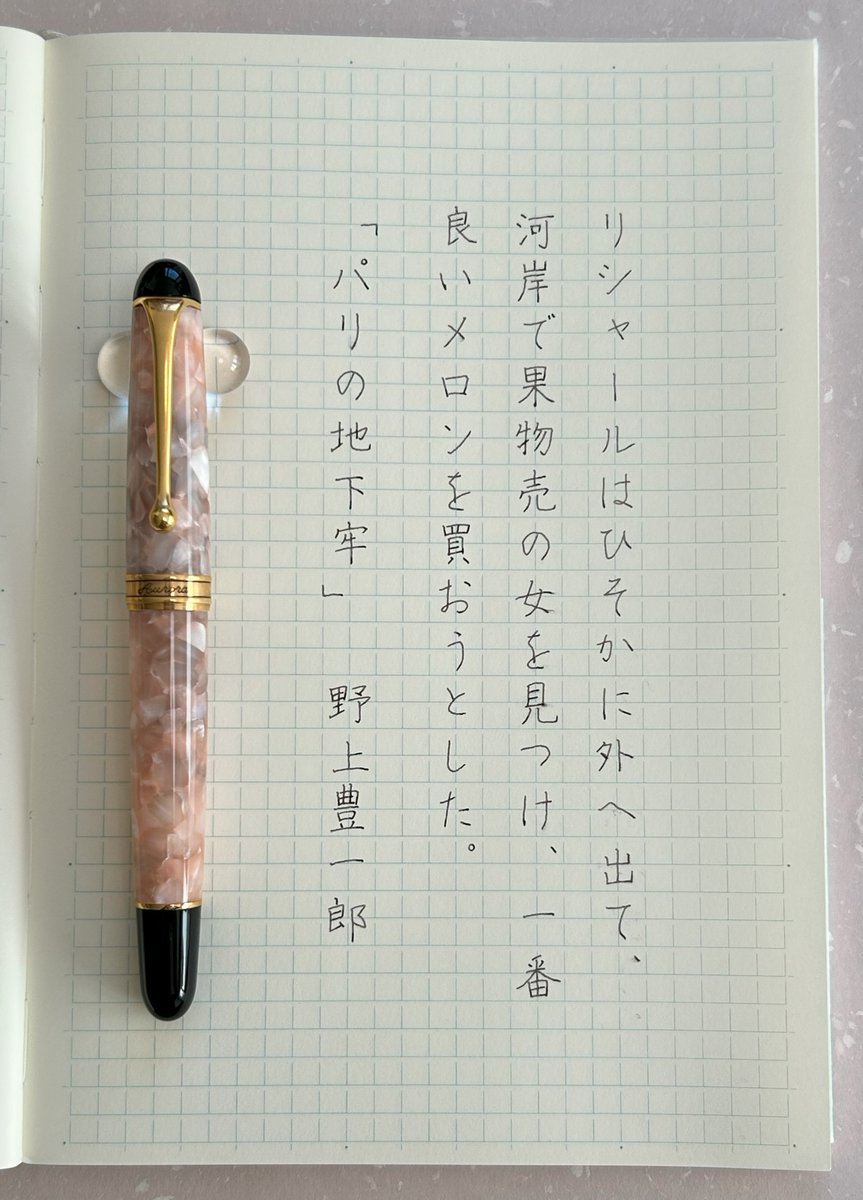 リシャールはひそかに外へ出て、
河岸で果物売の女を見つけ、一番
良いメロンを買おうとした。
「パリの地下牢」　野上豊一郎
Aurora